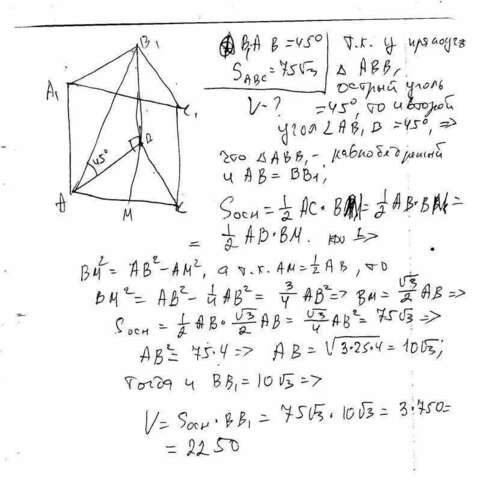 ∠B₁AB = 45°
S_ABC = 75√3
V - ?
т.к. у прямоуг.
△ ABB₁
острый угол
= 45°, то и второй
угол ∠AB₁B = 45°, ⇒
что △ABB₁ - равнобедренный
и AB = BB₁;
Sосн = 1/2 AC · BM = 1/2 AB · BM =
= 1/2 AB · BM. ⇒
BM² = AB² - AM², а т.к. AM = 1/2 AB, то
BM² = AB² - 1/4 AB² = 3/4 AB² ⇒ BM = √3/2 AB ⇒
Sосн = 1/2 AB · √3/2 AB = √3/4 AB² = 75√3 ⇒
AB² = 75·4 ⇒ AB = √3·25·4 = 10√3;
тогда и BB₁ = 10√3 ⇒
V = Sосн · BB₁ = 75√3 · 10√3 = 3·750 =
= 2250
B₁
A₁
C₁
B
45°
A
M
C